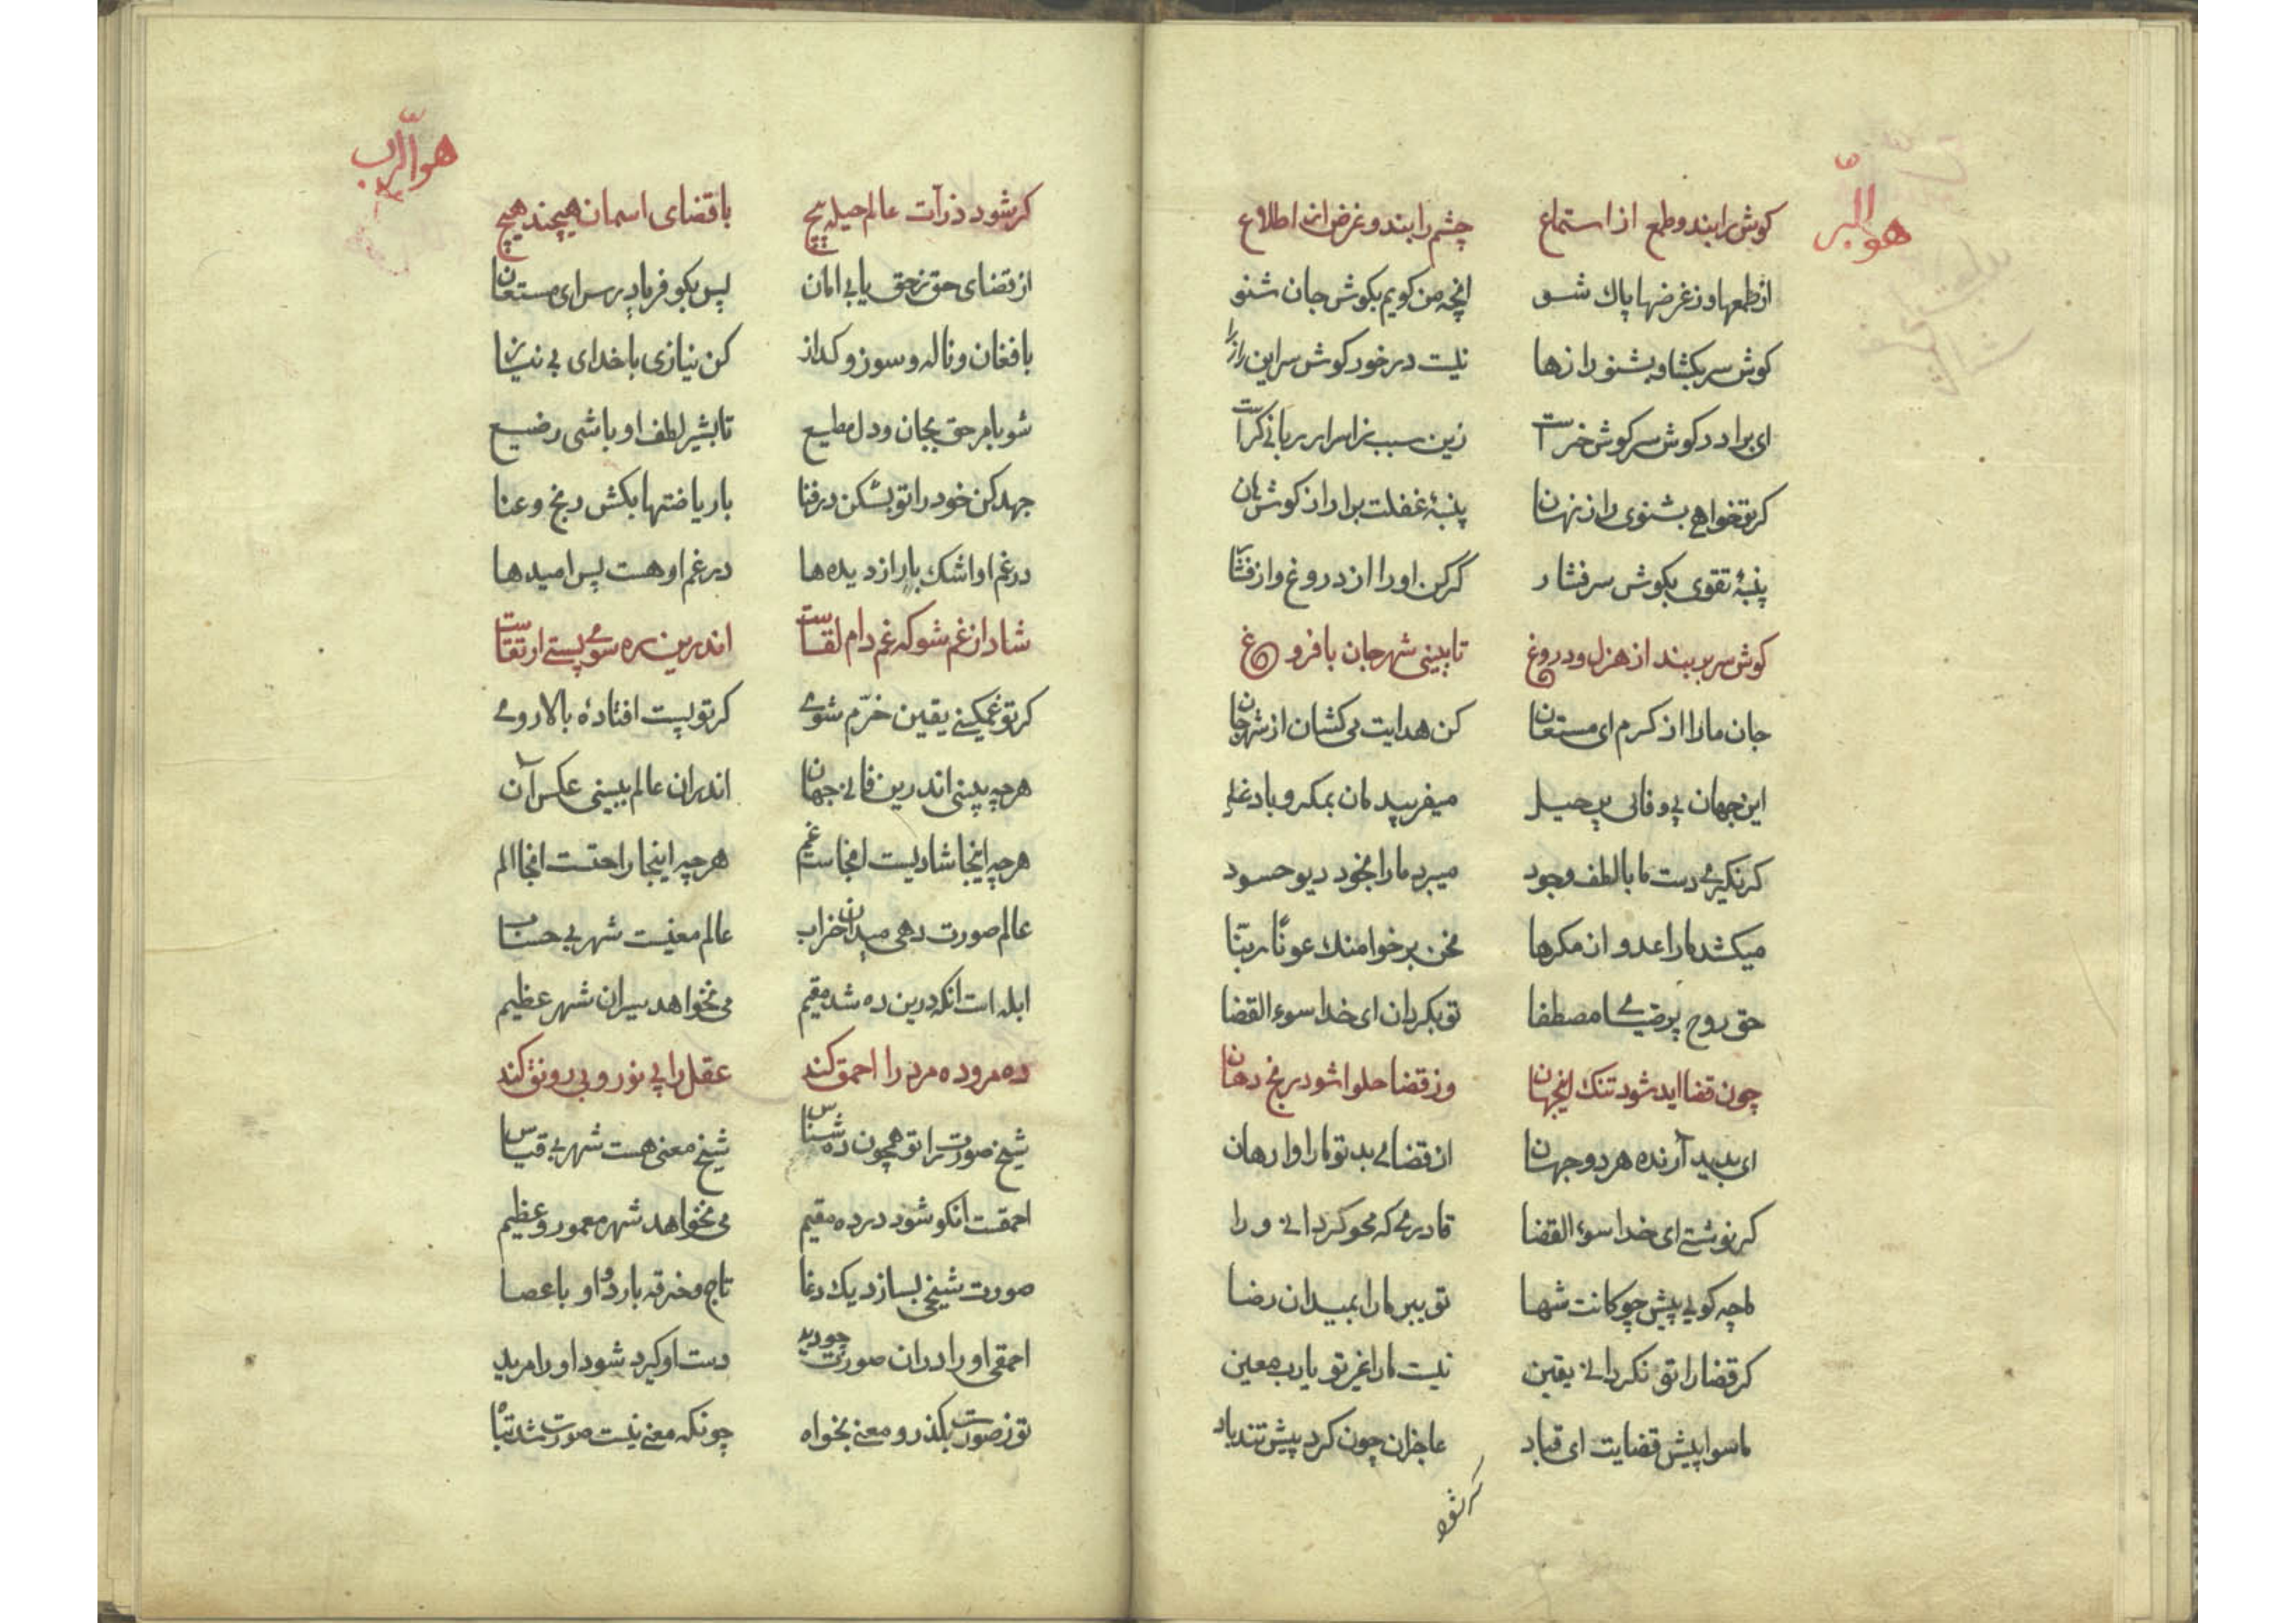 هو البر
کوش را بند و طمع از استماع چشم را بند و غرض از اطلاع
از طمعها وز غرضها پاك شو انچه من کویم بکوش جان شنو
کوش سر بکشا و بشنو رازها نیست در خور کوش سر این راز را
ای برادر کوش سر کوش خرست زین سبب ز اسرار ربانی کرست
کر تو خواهی بشنوی راز نهان پنبهٔ غفلت برار از کوش هان
پنبهٔ تقوی بکوش سر فشار کر کن او را از دروغ و از
کوش سر بر بند از هزل و دروغ تا ببینی شهر جان با فروغ
جان ما را از کرم ای مستعان کن هدایت می کشان از شهر جان
این جهان بی وفای پر حیل میفریبد مان بمکر و با دغل
کر نکیری دست ما با لطف وجود میبرد ما را بخود دیو حسود
میکشد ما را عدو از مکرها نحن برخوا منك عونًا ربنا
حق روح مصطفا تو بکردان ای خدا سوء القضا
چون قضا اید شود تنك اینجهان وز قضا حلوا شود رنج دهان
ای بدید آرنده هر دو جهان از قضای بد تو ما را وا رهان
کر نوشتی ای خدا سوء القضا قادری که محو کردانی ورا
ما چه کویی پیش چوکانت شها تو ببر ما را بمیدان رضا
کر قضا را تو نکردانی یقین نیست ما را غیر تو یا رب معین
ما سوا پیش قضایت ای قباد عاجزان چون کرد پیش تند باد
کر شود
هو الرب
کر شود ذرآت عالم حیله پیچ با قضای اسمان هیچند هیچ
از قضای حق ز حق یابی امان پس بکو فریاد رس ای مستعان
با فغان و ناله و سوز و کداز کن نیازی با خدای بی نیاز
شو بامر حق بجان و دل مطیع تا بشیر لطف او باشی رضیع
جهد کن خود را تو بشکن در فنا با ریاضتها بکش رنج و عنا
در غم او اشك بار از دیده ها در غم او هست پس امیدها
شاد از غم شو که غم دام لقاست اندرین ره سوی پستی ارتقاست
کر تو غمکینی یقین خرّم شوی کر تو پست افتادهٔ بالا روی
هر چه بینی اندرین فانی جهان اندران عالم ببینی عکس آن
هر چه اینجا شادیست انجاست غم هر چه اینجا راحتست انجا الم
عالم صورت دهی میدان خراب عالم معنیست شهر بی حساب
ابله است انکه درین ده شد مقیم می نخواهد سیران شهر عظیم
ده مرو ده مرد را احمق کند عقل را بی نور و بی رونق کند
شیخ صورت را تو همچون ده شناس شیخ معنی هست شهر بی قیاس
احمقست انکو شود در ده مقیم می نخواهد شهر معمور و عظیم
صورت شیخی بسازد یك دغا تاج و خرقه با ردا و با عصا
احمقی او را دران صورت چو دید دست او کیرد شود او را مرید
تو ز صورت بکذر و معنی بخواه چونکه معنی نیست صورت شد تباه